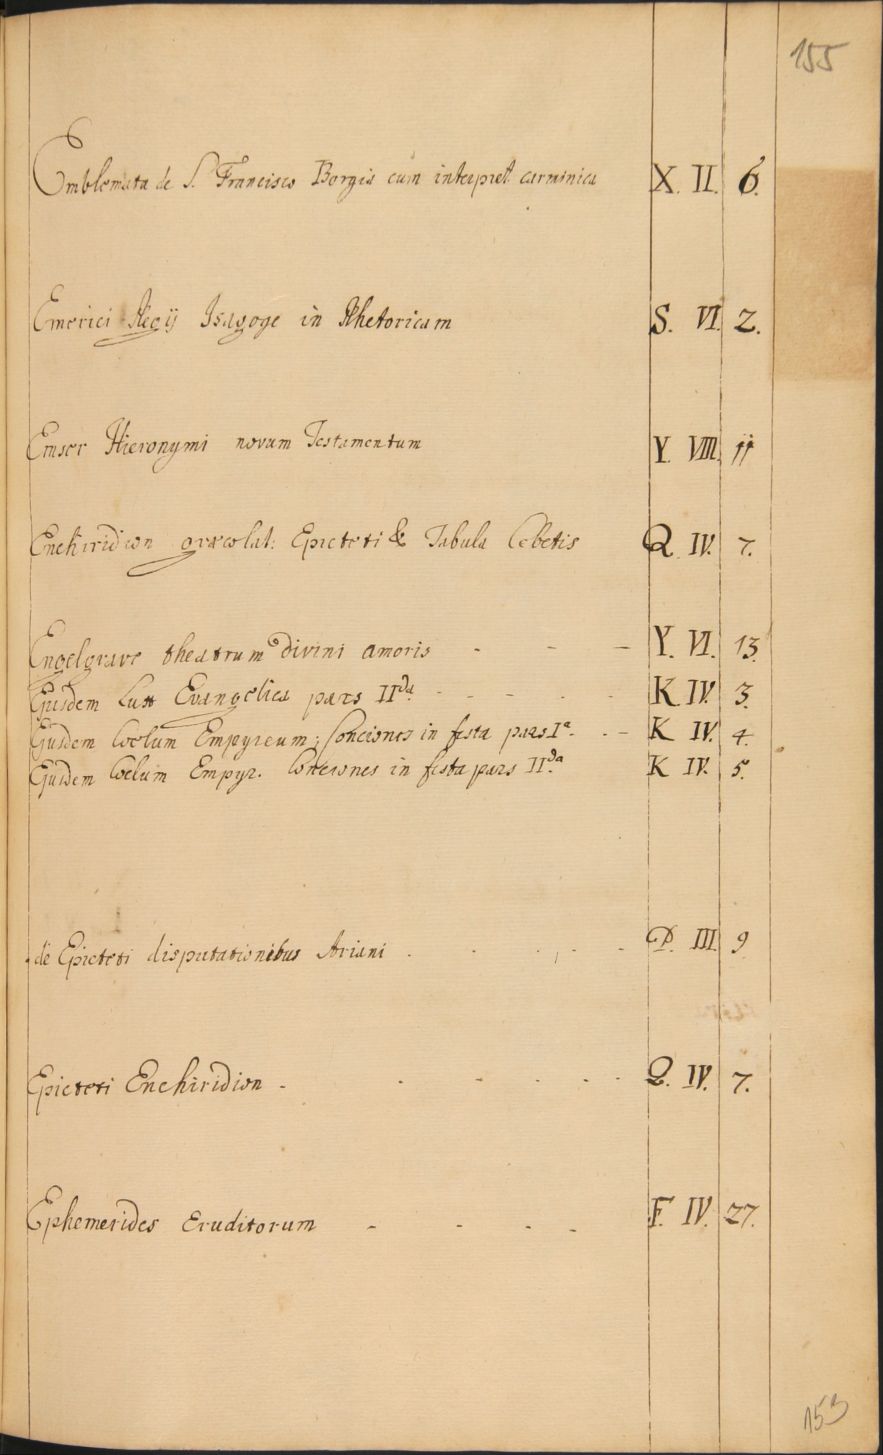 155
Emblemata de S. Francisco Borgia cum interpret. carminica X. II. 6.
Emerici Regij Isagoge in Rhetoricam S. VI. 2.
Emser Hieronymi novum Testamentum Y. VIII. 11
Enchiridion græcolat: Epicteti & Tabula Cebetis Q IV. 7.
Engelgrave theatrum divini amoris - - - Y. VI. 13
Ejusdem Lux Evangelica pars IIda - - - - - K IV. 3.
Ejusdem Coelum Empyreum; Conciones in festa pars Ia. - - K IV. 4.
Ejusdem Coelum Empyr. Conciones in festa pars IIda K IV. 5.
de Epicteti disputationibus Ariani - - - - - P. III. 9
Epicteti Enchiridion - - - - - - Q. IV. 7.
Ephemerides Eruditorum - - - - F. IV. 27.
153